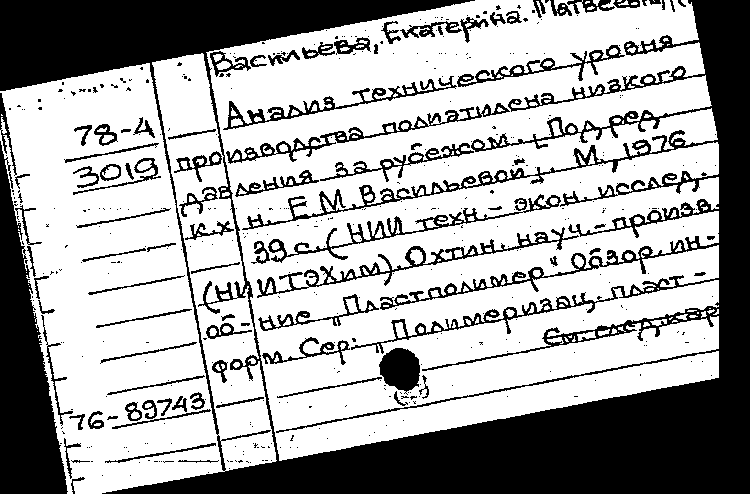 Васильева, Екатерина Матвеевна
78-4
3019
Анализ технического уровня
производства полиэтилена низкого
давления за рубежом. [Под ред.
к.х.н. Е.М. Васильевой]. М., 1976.
39 с. (НИИ техн.- экон. исслед.
(НИИТЭХим). Охтин. науч.-произв.
об-ние „Пластполимер" Обзор. ин-
форм. Сер: „Полимеризац. пласт-
См. след. кар
76-89743